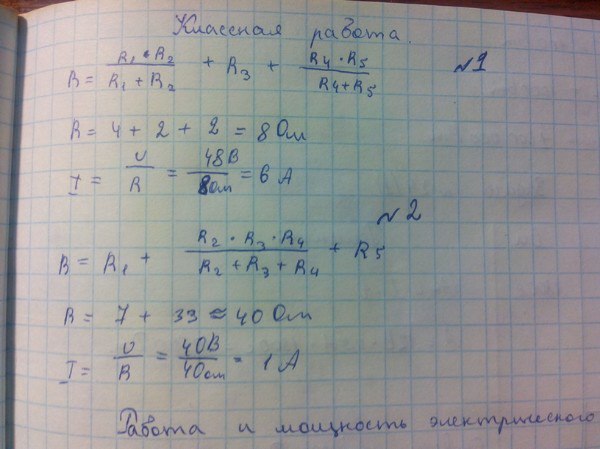 Классная работа.
R = R₁ · R₂ / R₁ + R₂ + R₃ + R₄ · R₅ / R₄ + R₅ №1
R = 4 + 2 + 2 = 8 Ом
I = U / R = 48В / 8Ом = 6 А
№2
R = R₁ + R₂ · R₃ · R₄ / R₂ + R₃ + R₄ + R₅
R = 7 + 33 ≈ 40 Ом
I = U / R = 40В / 40Ом = 1 А
Работа и мощность электрического